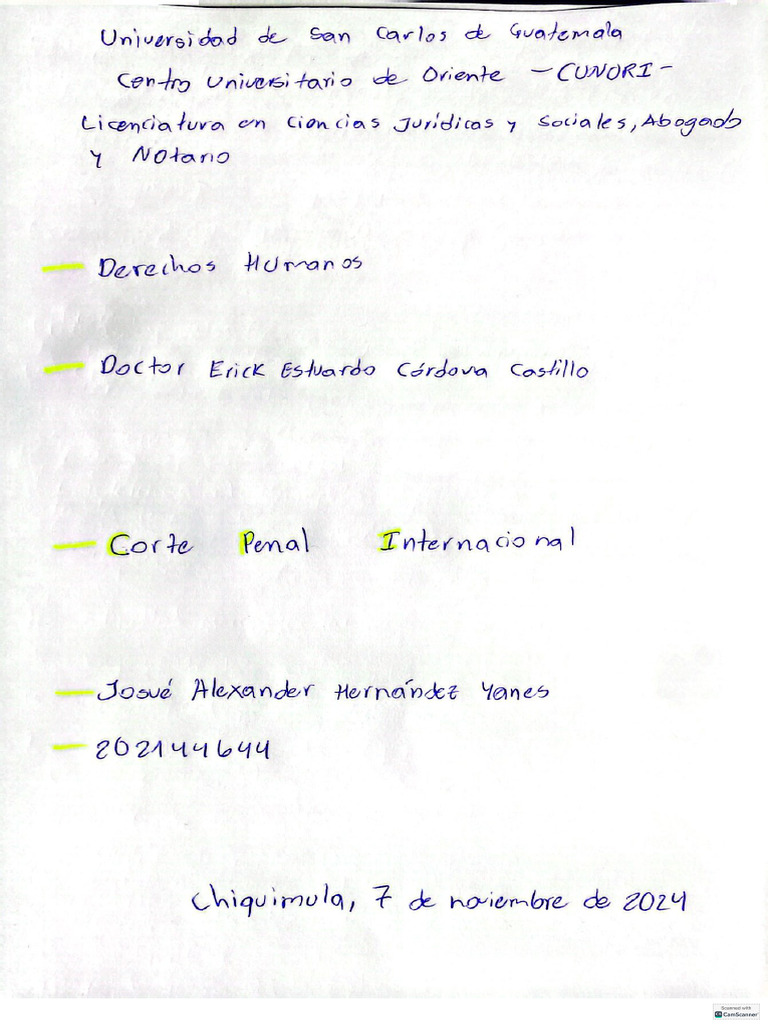 Universidad de San Carlos de Guatemala
Centro Universitario de Oriente - CUNORI -
Licenciatura en Ciencias Jurídicas y Sociales, Abogado
y Notario
Derechos Humanos
Doctor Erick Estuardo Córdova Castillo
Corte Penal Internacional
Josué Alexander Hernández Yanes
202144644
Chiquimula, 7 de noviembre de 2024
Scanned with
CS CamScanner